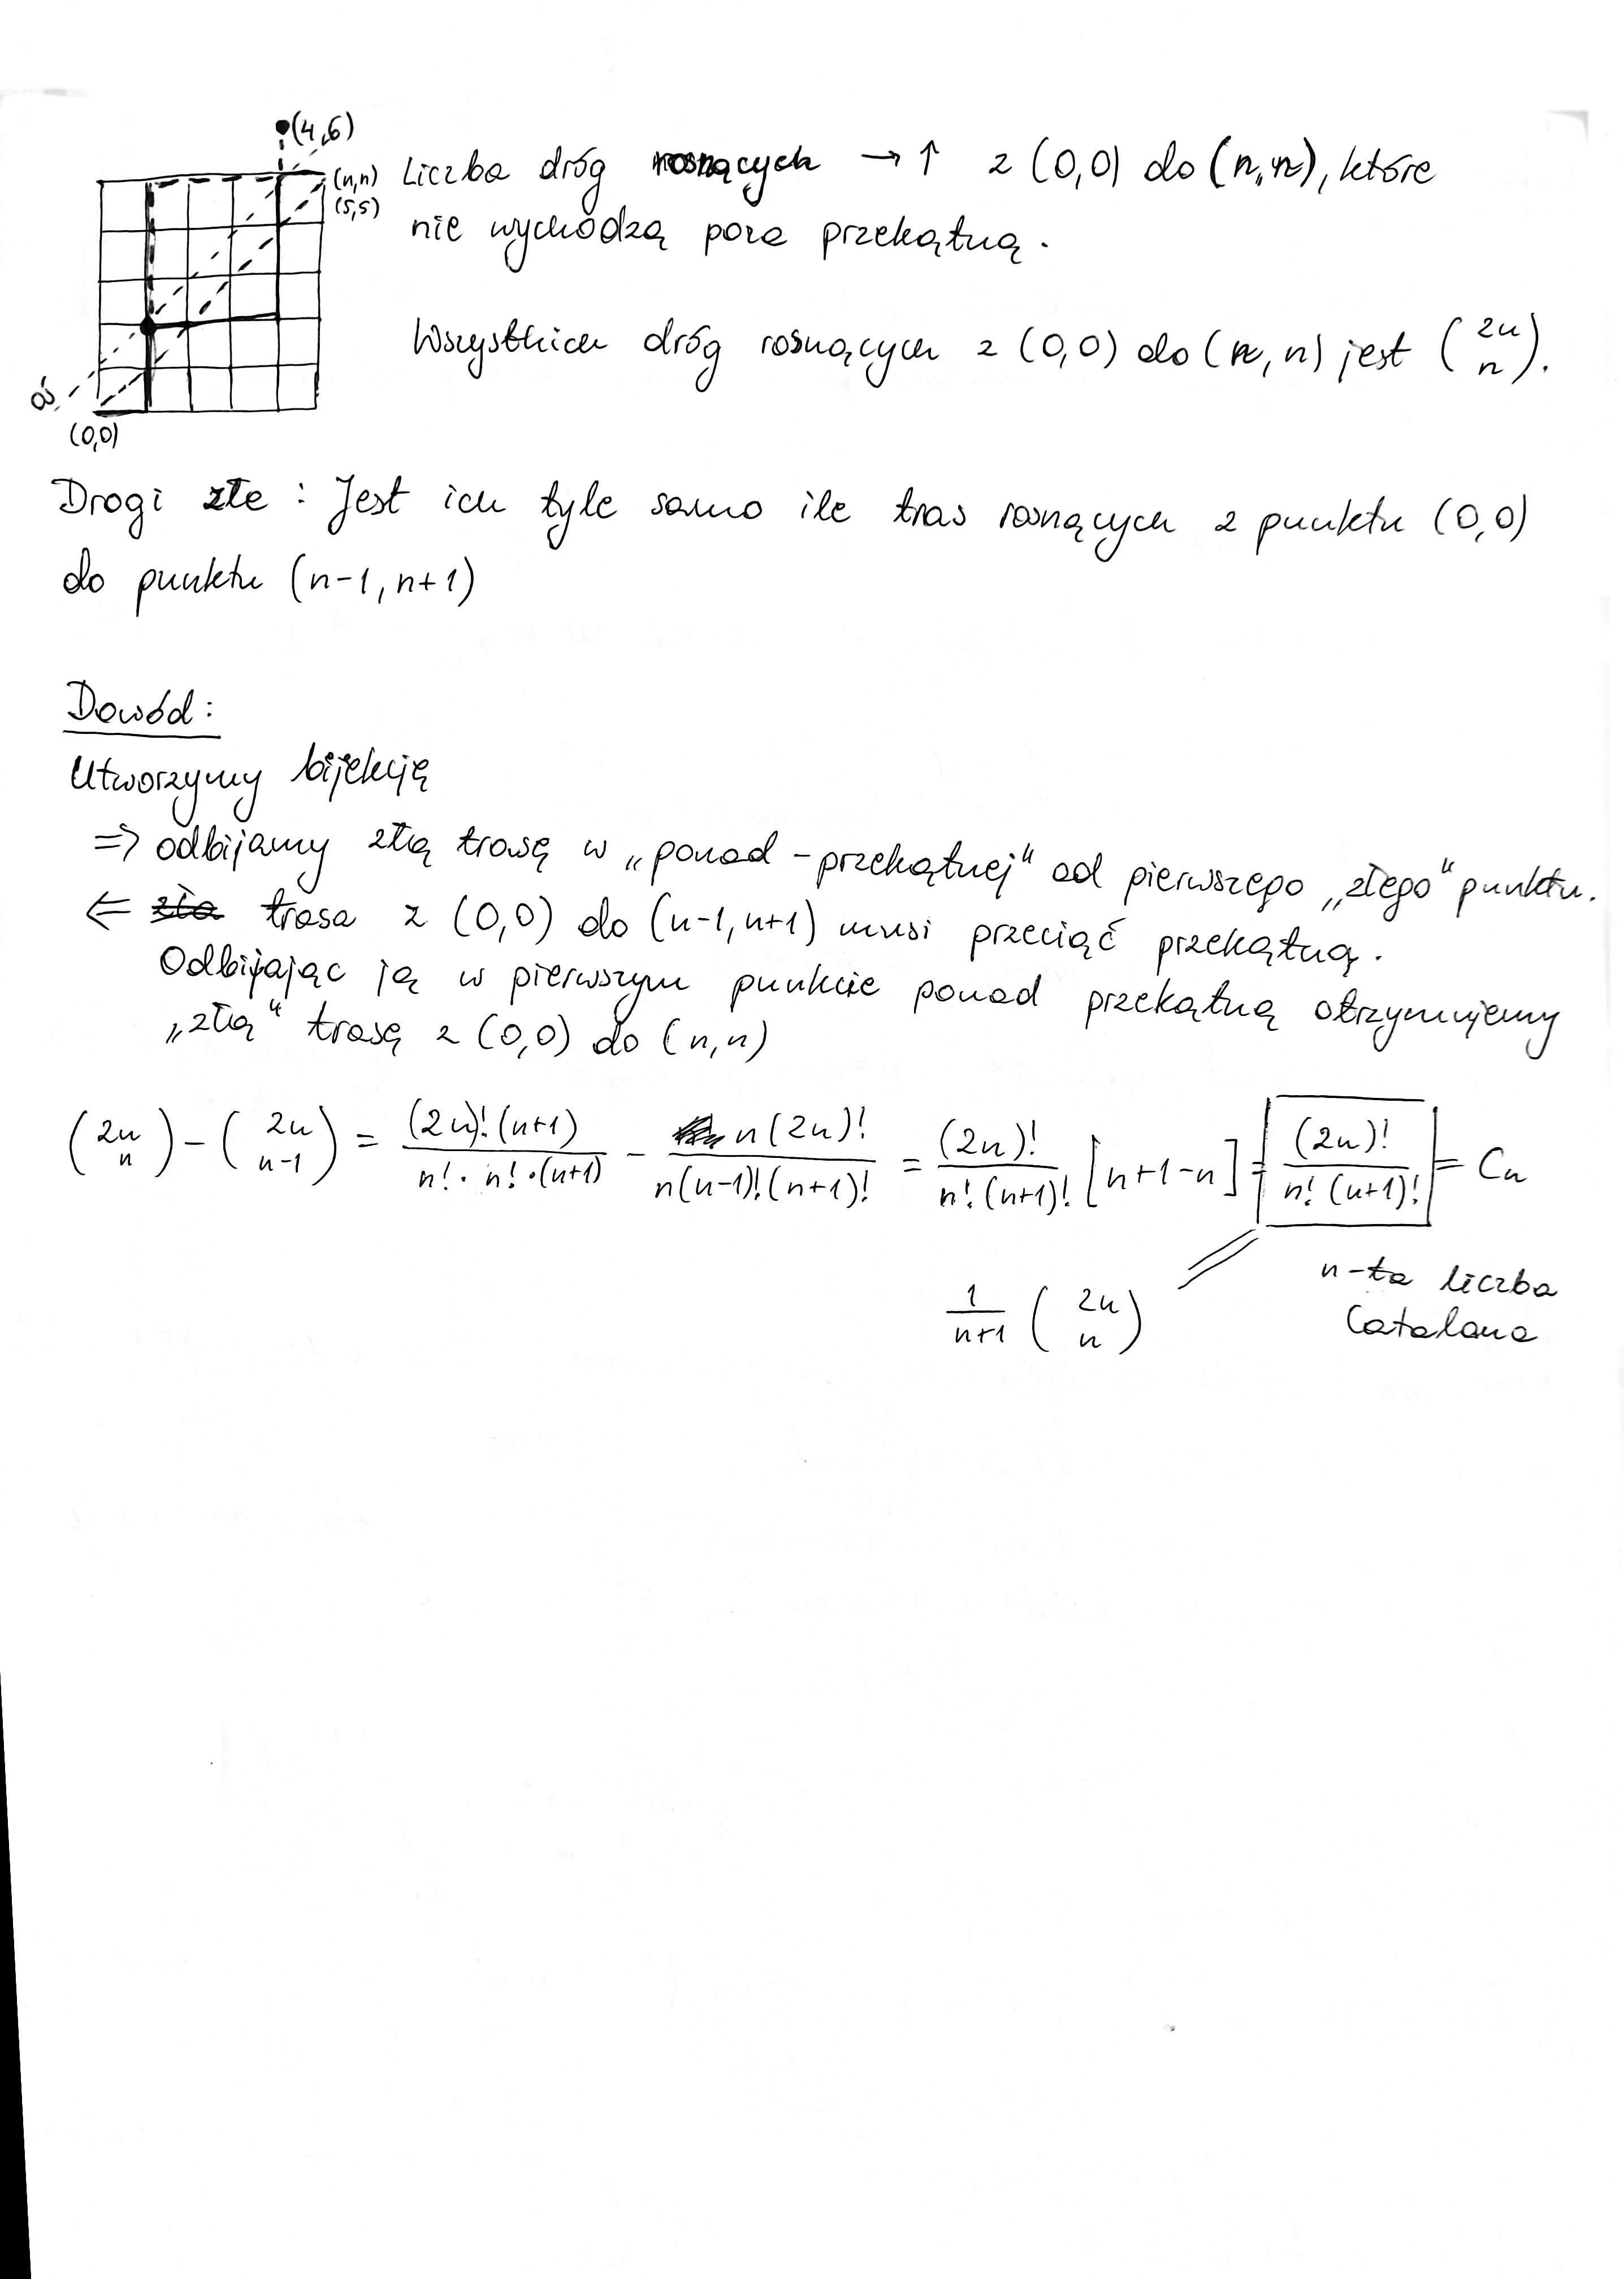 (4,6)
(n,n)
(5,5)
(0,0)
oś
Liczba dróg rosnących → ↑ z (0,0) do (n,n), które
nie wychodzą poza przekątną.
Wszystkich dróg rosnących z (0,0) do (n,n) jest (2n n).
Drogi złe : Jest ich tyle samo ile tras rosnących z punktu (0,0)
do punktu (n-1, n+1)
Dowód:
Utworzymy bijekcję
=> odbijamy złą trasę w „ponad-przekątnej" od pierwszego „złego" punktu.
<= zła trasa z (0,0) do (n-1, n+1) musi przeciąć przekątną.
Odbijając ją w pierwszym punkcie ponad przekątną otrzymujemy
„złą" trasę z (0,0) do (n,n)
(2n n) - (2n n-1) = (2n)!(n+1) / n!·n!·(n+1) - n(2n)! / n(n-1)!(n+1)! = (2n)! / n!(n+1)! [n+1-n] = (2n)! / n!(n+1)! = Cn
1/n+1 (2n n)
n-ta liczba
Catalana